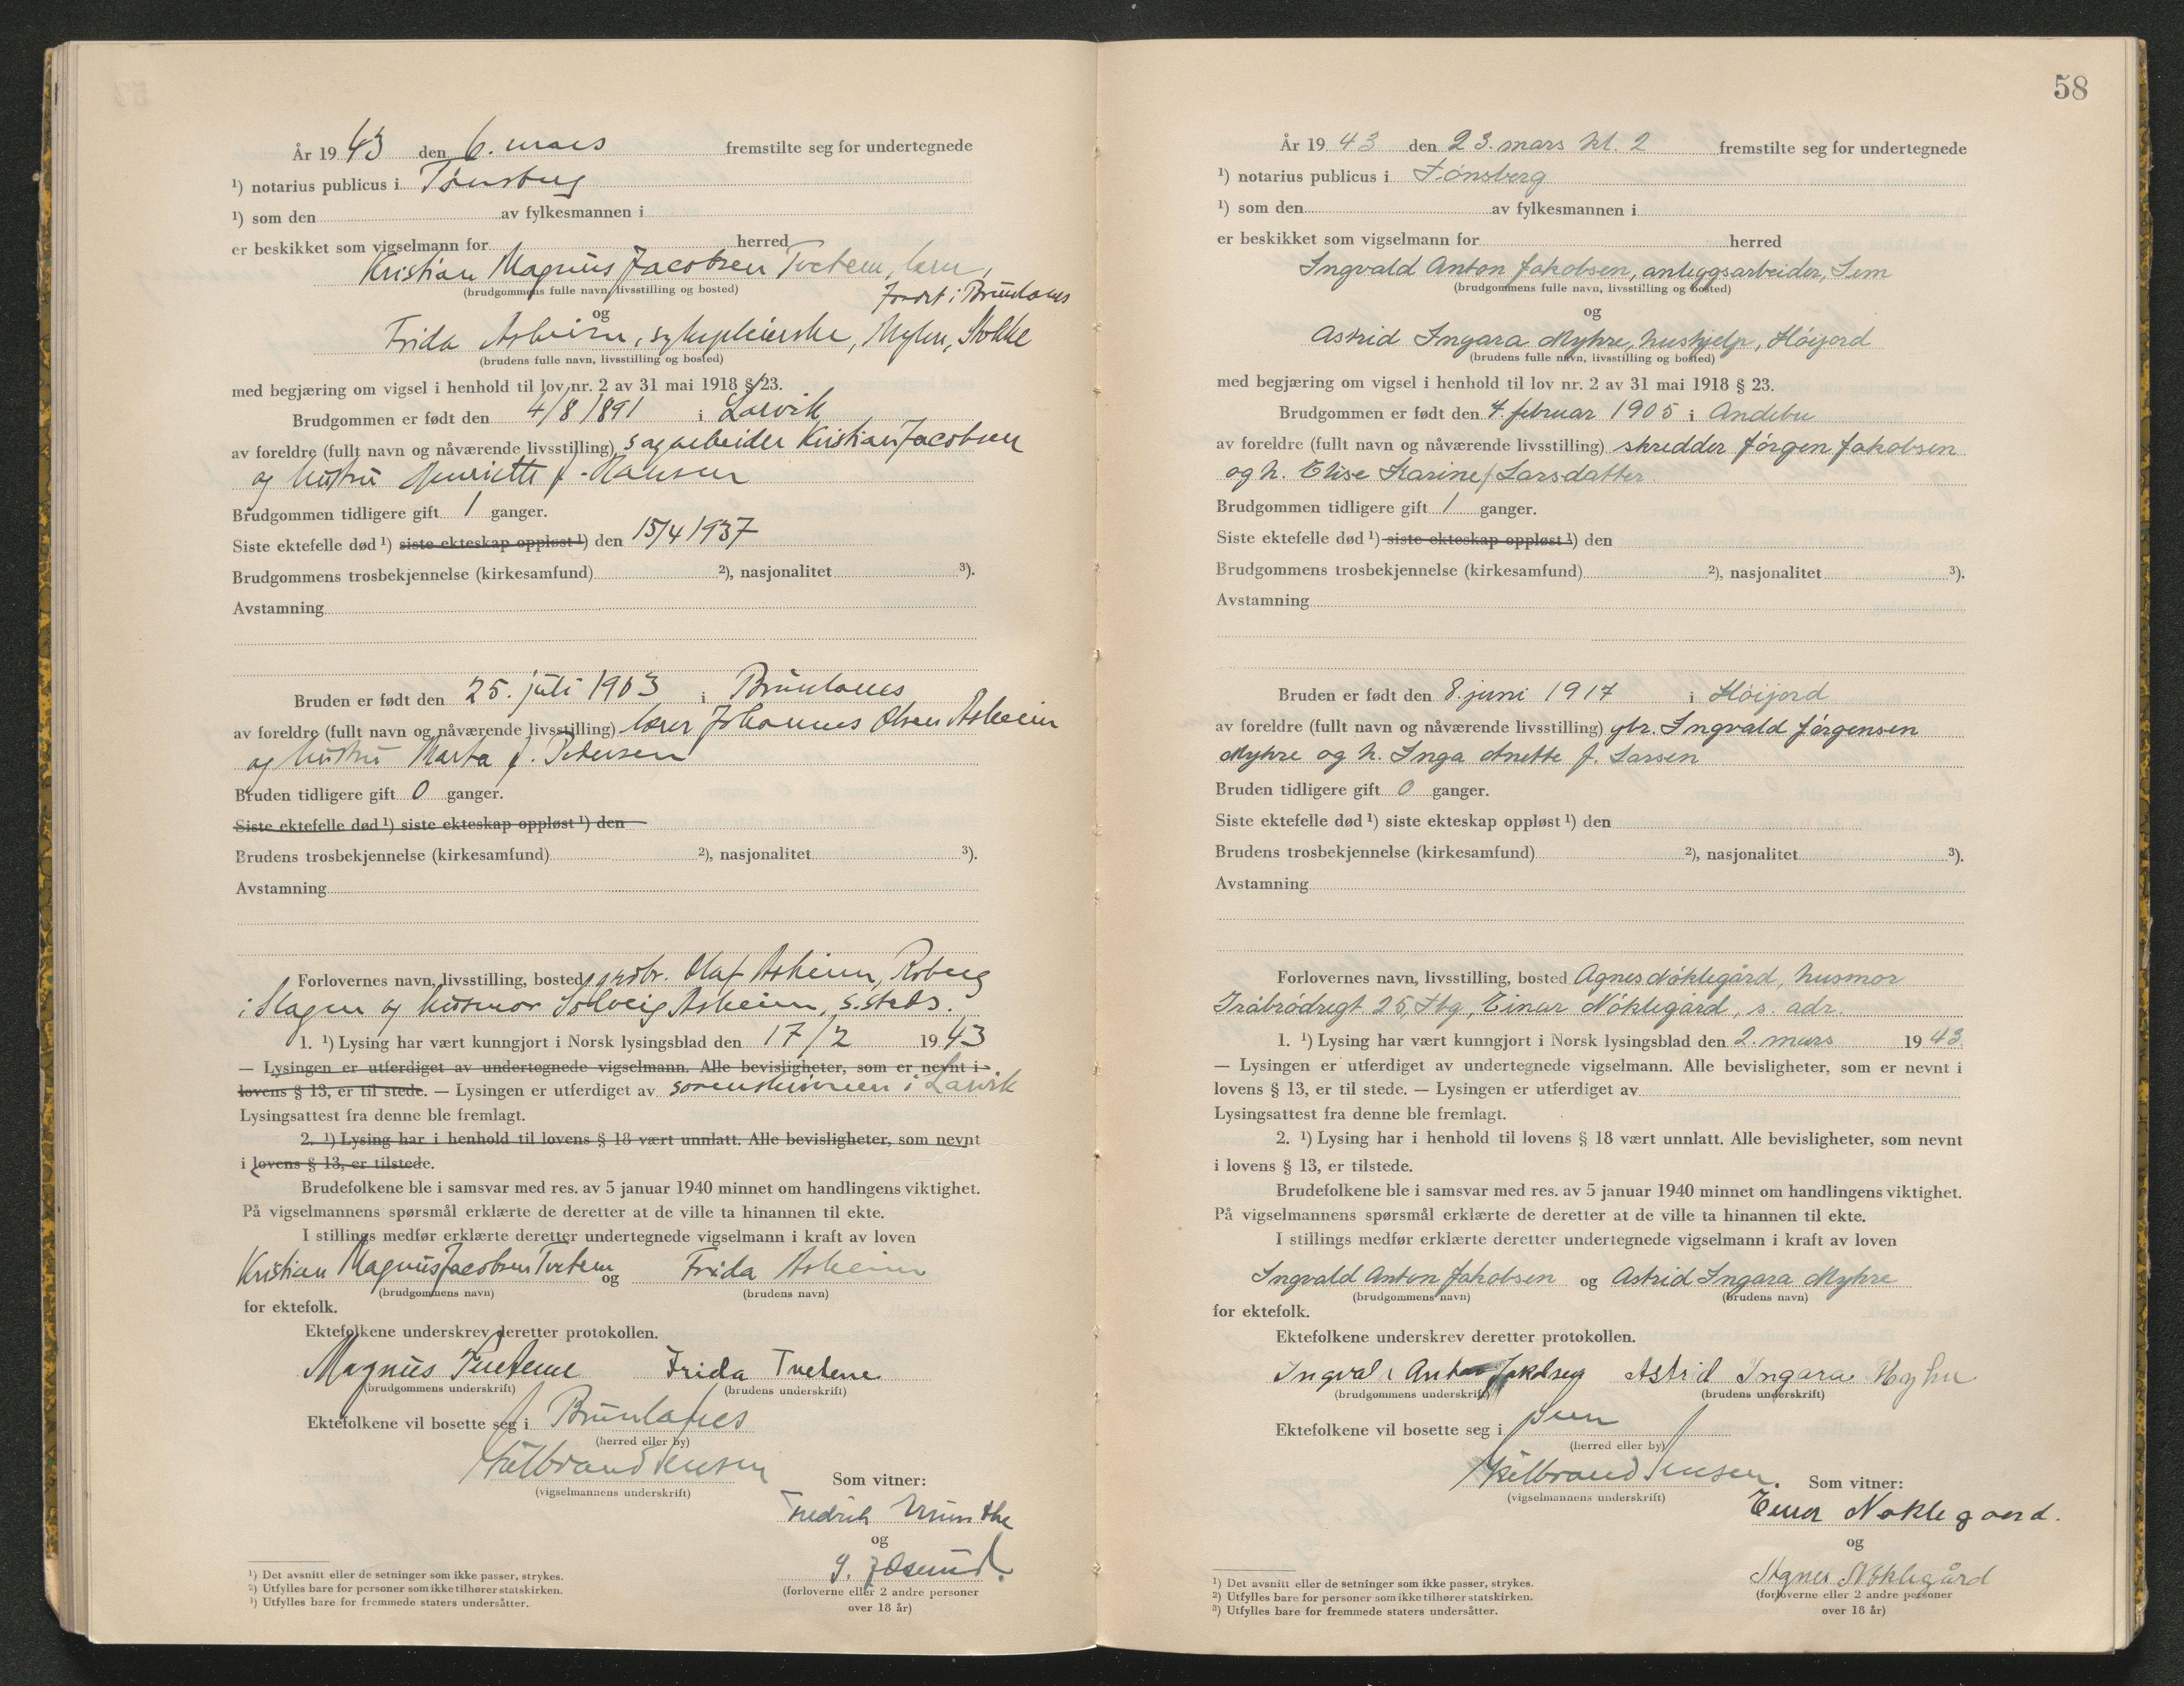 År 1943 den 6. mars fremstilte seg for undertegnede
¹) notarius publicus i Tønsberg
¹) som den av fylkesmannen i
er beskikket som vigselmann for herred
Kristian Magnus Jacobsen Tvetene, lærer,
(brudgommens fulle navn, livsstilling og bosted)
i Brunlanes
og
Frida Askeim, sykepleierske, Myhre, Stokke
(brudens fulle navn, livsstilling og bosted)
med begjæring om vigsel i henhold til lov nr. 2 av 31 mai 1918 § 23.
Brudgommen er født den 4/8 1891 i Larvik
av foreldre (fullt navn og nåværende livsstilling) sagarbeider Kristian Jacobsen
og hustru Henriette f. Hansen
Brudgommen tidligere gift 1 ganger.
Siste ektefelle død ¹) siste ekteskap oppløst ¹) den 15/4 1937
Brudgommens trosbekjennelse (kirkesamfund) ²), nasjonalitet ³).
Avstamning
Bruden er født den 25. juli 1903 i Brunlanes
av foreldre (fullt navn og nåværende livsstilling) lærer Johannes Olsen Askeim
og hustru Marta f. Pedersen
Bruden tidligere gift 0 ganger.
Siste ektefelle død ¹) siste ekteskap oppløst ¹) den
Brudens trosbekjennelse (kirkesamfund) ²), nasjonalitet ³).
Avstamning
Forlovernes navn, livsstilling, bosted gårdbr. Olaf Askeim, Roberg
i Slagen og husmor Solveig Askeim, s. steds.
1. ¹) Lysing har vært kunngjort i Norsk lysingsblad den 17/2 1943
— Lysingen er utferdiget av undertegnede vigselmann. Alle bevisligheter, som er nevnt i
lovens § 13, er til stede. — Lysingen er utferdiget av sorenskriveren i Larvik
Lysingsattest fra denne ble fremlagt.
2. ¹) Lysing har i henhold til lovens § 18 vært unnlatt. Alle bevisligheter, som nevnt
i lovens § 13, er tilstede.
Brudefolkene ble i samsvar med res. av 5 januar 1940 minnet om handlingens viktighet.
På vigselmannens spørsmål erklærte de deretter at de ville ta hinannen til ekte.
I stillings medfør erklærte deretter undertegnede vigselmann i kraft av loven
Kristian Magnus Jacobsen Tvetene og Frida Askeim
(brudgommens navn) (brudens navn)
for ektefolk.
Ektefolkene underskrev deretter protokollen.
Magnus Tvetene Frida Tvetene
(brudgommens underskrift) (brudens underskrift)
Ektefolkene vil bosette seg i Brunlanes
(herred eller by)
Hilbrand Jensen
(vigselmannens underskrift)
Som vitner:
Fredrik Munthe
og
(forloverne eller 2 andre personer
over 18 år)
¹) Det avsnitt eller de setninger som ikke passer, strykes.
²) Utfylles bare for personer som ikke tilhører statskirken.
³) Utfylles bare for fremmede staters undersåtter.
58
År 1943 den 23. mars kl. 2 fremstilte seg for undertegnede
¹) notarius publicus i Tønsberg
¹) som den av fylkesmannen i
er beskikket som vigselmann for herred
Ingvald Anton Jakobsen, anleggsarbeider, Sem
(brudgommens fulle navn, livsstilling og bosted)
og
Astrid Ingara Myhre, hushjelp, Høijord
(brudens fulle navn, livsstilling og bosted)
med begjæring om vigsel i henhold til lov nr. 2 av 31 mai 1918 § 23.
Brudgommen er født den 4. februar 1905 i Andebu
av foreldre (fullt navn og nåværende livsstilling) skredder Jørgen Jakobsen
og h. Elise Karine f. Larsdatter.
Brudgommen tidligere gift 1 ganger.
Siste ektefelle død ¹) siste ekteskap oppløst ¹) den
Brudgommens trosbekjennelse (kirkesamfund) ²), nasjonalitet ³).
Avstamning
Bruden er født den 8. juni 1917 i Høijord
av foreldre (fullt navn og nåværende livsstilling) gbr. Ingvald Jørgensen
Myhre og h. Inga Anette f. Larsen
Bruden tidligere gift 0 ganger.
Siste ektefelle død ¹) siste ekteskap oppløst ¹) den
Brudens trosbekjennelse (kirkesamfund) ²), nasjonalitet ³).
Avstamning
Forlovernes navn, livsstilling, bosted Agnes Nøklegård, husmor
Træbrødregt 25, Tbg, Einar Nøklegård, s. adr.
1. ¹) Lysing har vært kunngjort i Norsk lysingsblad den 2. mars 1943
— Lysingen er utferdiget av undertegnede vigselmann. Alle bevisligheter, som er nevnt i
lovens § 13, er til stede. — Lysingen er utferdiget av
Lysingsattest fra denne ble fremlagt.
2. ¹) Lysing har i henhold til lovens § 18 vært unnlatt. Alle bevisligheter, som nevnt
i lovens § 13, er tilstede.
Brudefolkene ble i samsvar med res. av 5 januar 1940 minnet om handlingens viktighet.
På vigselmannens spørsmål erklærte de deretter at de ville ta hinannen til ekte.
I stillings medfør erklærte deretter undertegnede vigselmann i kraft av loven
Ingvald Anton Jakobsen og Astrid Ingara Myhre
(brudgommens navn) (brudens navn)
for ektefolk.
Ektefolkene underskrev deretter protokollen.
Ingvald Anton Jakobsen Astrid Ingara Myhre
(brudgommens underskrift) (brudens underskrift)
Ektefolkene vil bosette seg i Sem
(herred eller by)
Hilbrand Jensen
(vigselmannens underskrift)
Som vitner:
Einar Nøklegaard.
og
Agnes Nøklegård
(forloverne eller 2 andre personer
over 18 år)
¹) Det avsnitt eller de setninger som ikke passer, strykes.
²) Utfylles bare for personer som ikke tilhører statskirken.
³) Utfylles bare for fremmede staters undersåtter.